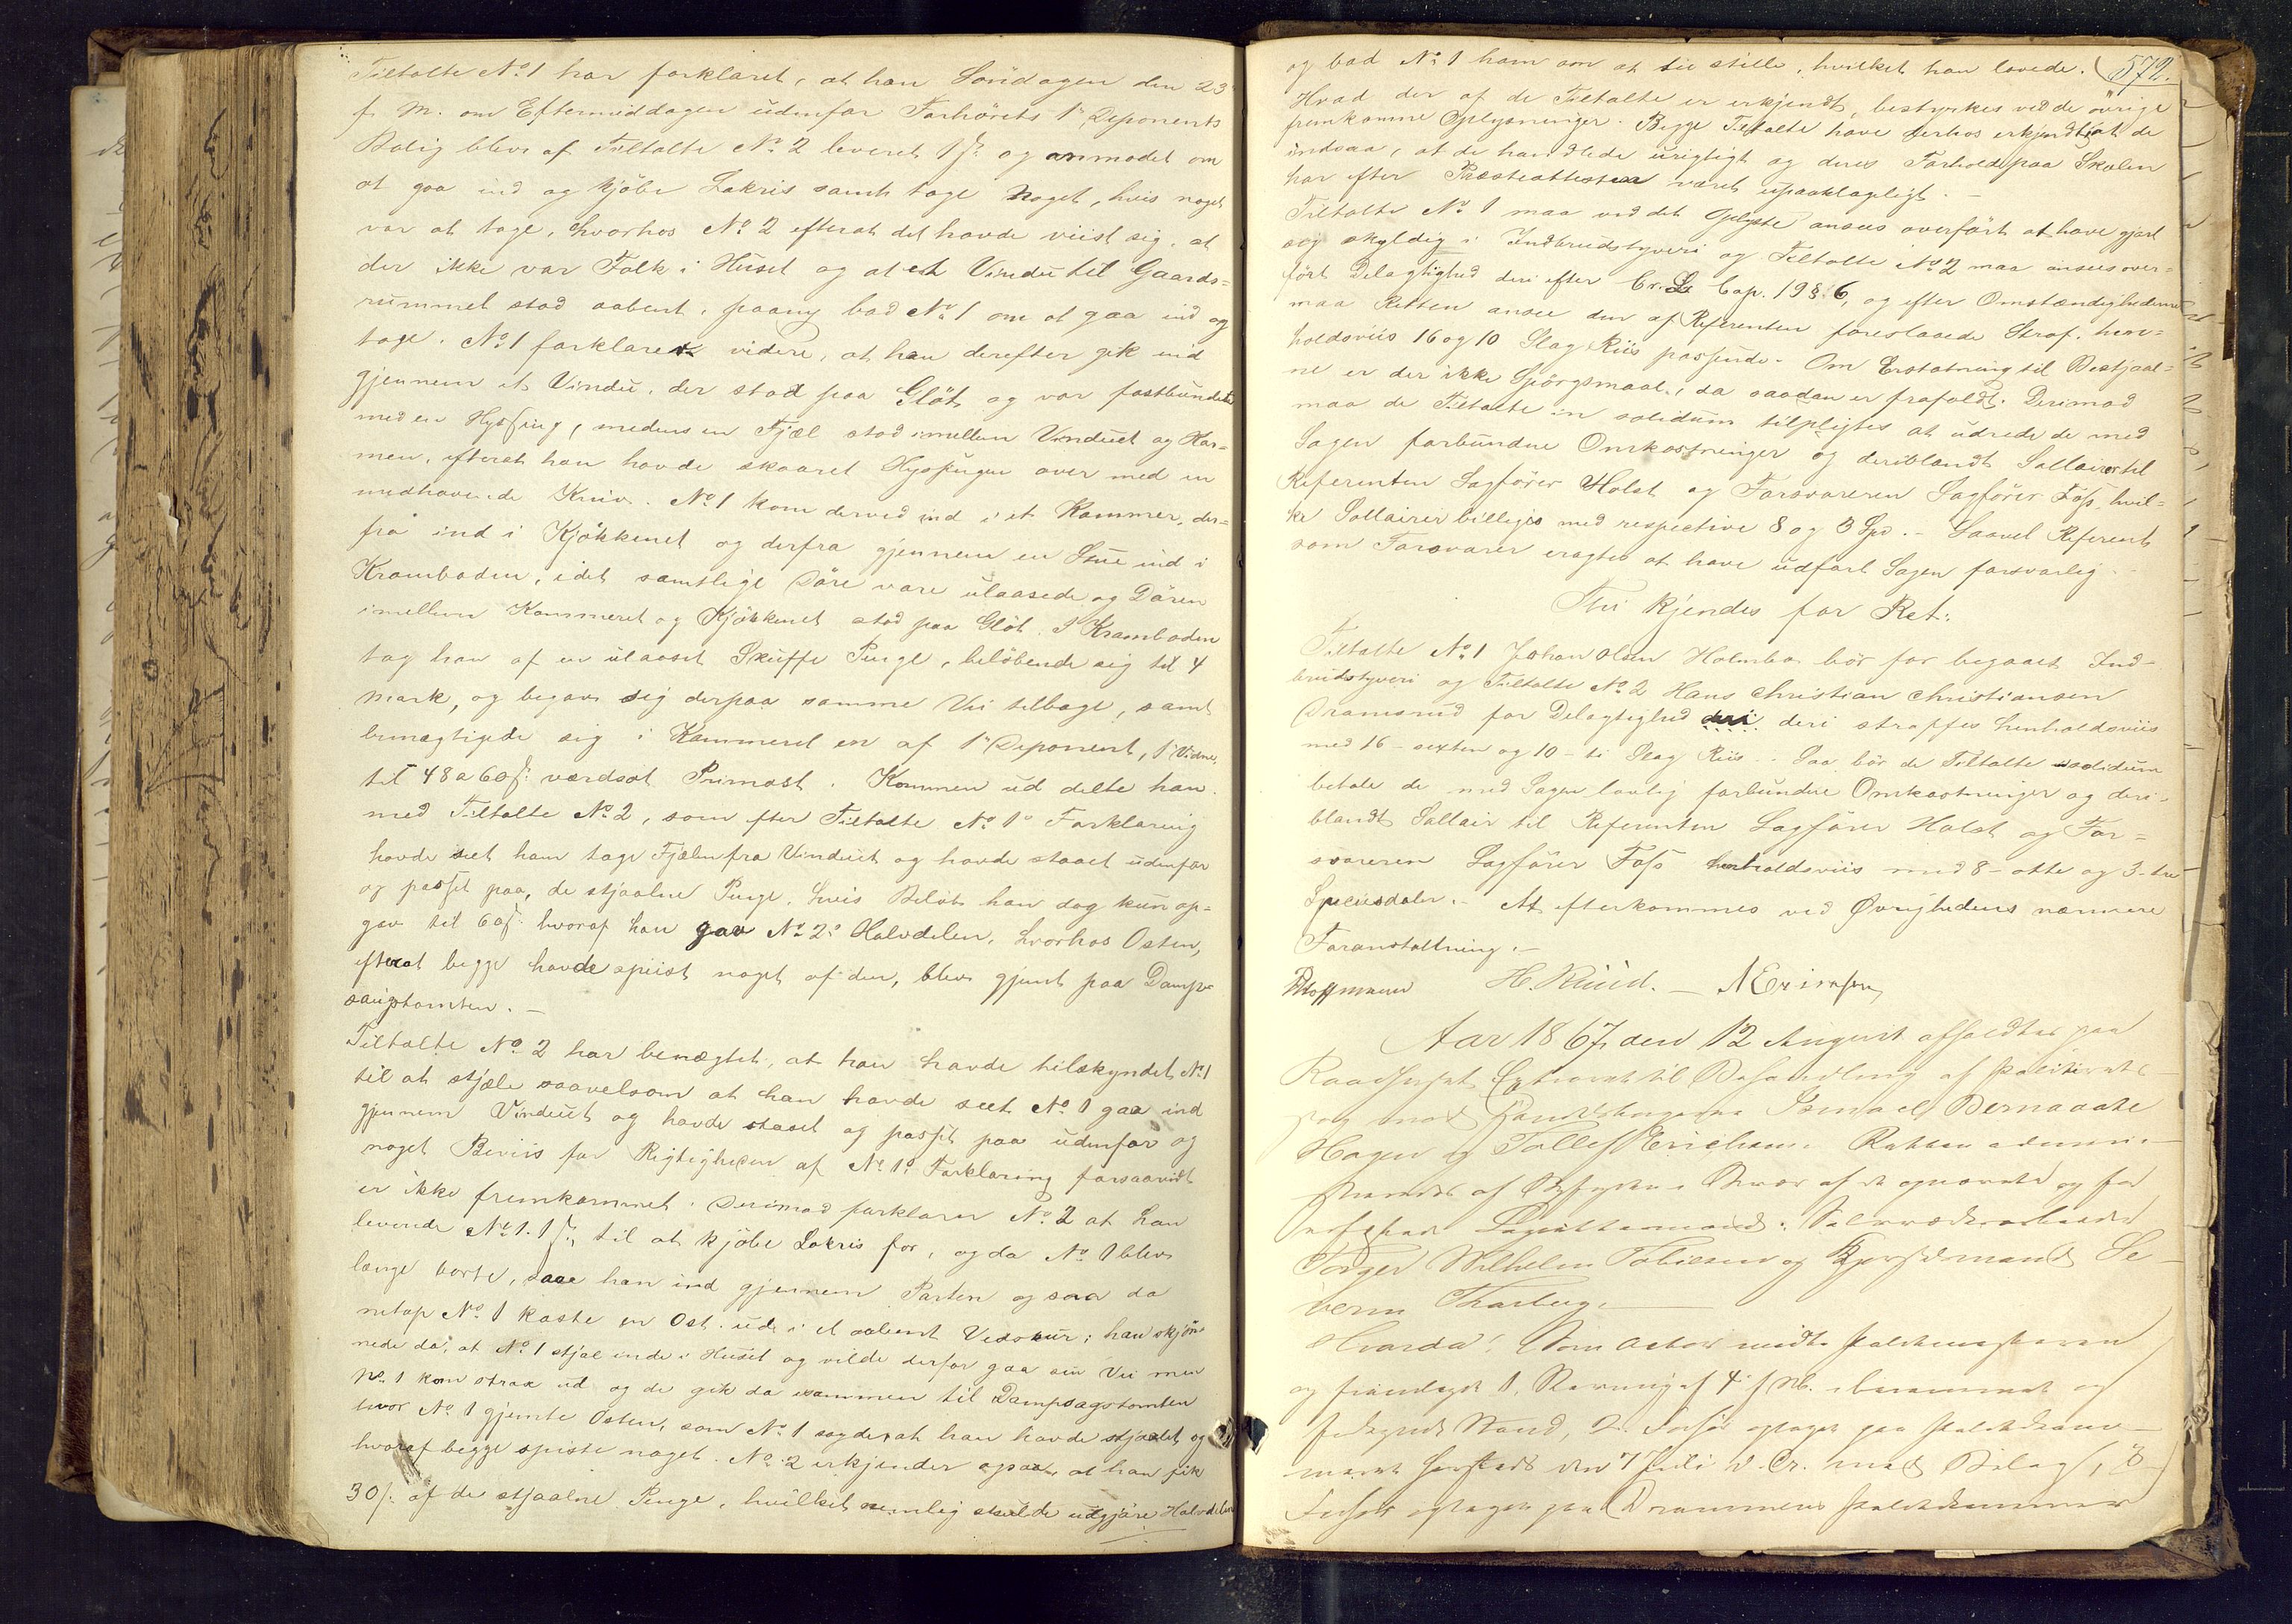 Tiltalte No 1 har forklaret, at han Søndagen den 23de
f. M. om Eftermiddagen udenfor Forhørets 1ste Deponents
Bolig blev af Tiltalte No 2 leveret 1 s. og anmodet om
at gaa ind og kjøbe Lakris samt tage noget, hvis noget
var at tage, hvorhos No 2 efterat det havde viist sig, at
der ikke var Folk i Huset og at et Vindu til Gaards-
rummet stod aabent, paany bad No 1 om at gaa ind og
tage. No 1 forklarer videre, at han derefter gik ind
gjennem et Vindu, der stod paa Gløt og var fastbundet
med en Hyssing, medens en Fjæl stod imellem Vinduet og Kar-
men, efterat han havde skaaret Hyssingen over med en
medhavende Kniv. No 1 kom derved ind i et Kammer, der-
fra ind i Kjøkkenet og derfra gjennem en Stue ind i
Kramboden, idet samtlige Døre vare ulaasede og Døren
imellem Kammeret og Kjøkkenet stod paa Gløt. I Kramboden
tog han af en ulaaset Skuffe Penge, beløbende sig til 4
Mark, og begav sig derpaa samme Vei tilbage, samt
bemægtigede sig i Kammeret en af 1ste Deponent, 1ste Vidne,
til 48 a 60 s. værdsat Primost. Kommen ud delte han
med Tiltalte No 2, som efter Tiltalte No 1s Forklaring
havde seet ham tage Fjælen fra Vinduet og havde staaet udenfor
og passet paa, de stjaalne Penge, hvis Beløb han dog kun op-
gav til 60 s. hvoraf han gav No 2 Halvdelen, hvorhos Osten,
efterat begge havde spiist noget af den, blev gjemt paa Damp-
saugstomten. —
Tiltalte No 2 har benægtet, at han havde tilskyndet No 1
til at stjæle saavelsom at han havde seet No 1 gaa ind
gjennem Vinduet og havde staaet og passet paa udenfor og
noget Beviis for Rigtigheden af No 1s Forklaring forsaavidt
er ikke fremkommet. Derimod forklarer No 2 at han
leverede No 1. 1 s. til at kjøbe Lakris for, og da No 1 blev
længe borte, saae han ind gjennem Porten og saa da
netop No 1 kaste en Ost ud i et aabent Vedskur; han skjøn-
nede da, at No 1 stjal inde i Huset og vilde derfor gaa sin Vei men
No 1 kom strax ud og de gik da sammen til Dampsagstomten
hvor No 1 gjemte Osten, som No 1 sagde at han havde stjaalet og
hvoraf begge spiste noget. No 2 erkjender ogsaa, at han fik
30 s. af de stjaalne Penge, hvilket nemlig skulde udgjøre Halvdelen
og bad No 1 ham om at tie stille, hvilket han lovede.
572.
Hvad der af de Tiltalte er erkjendt, bestyrkes ved de øvrige
fremkomne Oplysninger. Begge Tiltalte have derhos erkjendt, at de
indsaa, at de handlede urigtigt og deres Forhold paa Skolen
har efter Præsteattesten været upaaklageligt. —
Tiltalte No 1 maa ved det Oplyste ansees overført at have gjort
sig skyldig i Indbrudstyveri og Tiltalte No 2 maa ansees over-
ført Delagtighed deri efter Cr. L. Cap. 19 § 6, og efter Omstændighederne
maa Retten ansee den af Referenten foreslaaede Straf, hen-
holdsviis 16 og 10 Slag Riis passende. Om Erstatning til Bestjaal-
ne er der ikke Spørgsmaal, da saadan er frafaldt. Derimod
maa de Tiltalte in solidum tilpligtes at udrede de med
Sagen forbundne Omkostninger og deriblandt Sallairer til
Referenten Sagfører Holst og Forsvareren Sagfører Foss, hvil-
ke Sallairer billiges med respective 8 og 3 Spd. — Saavel Referent
som Forsvarer eragtes at have udført Sagen forsvarlig.
Thi kjendes for Ret:
Tiltalte No 1 Johan Olsen Holmbo bør for begaaet Ind-
brudstyveri og Tiltalte No 2 Hans Christian Christiansen
Dramsrud for Delagtighed deri straffes henholdsviis
med 16 – sexten og 10 – ti Slag Riis. — Saa bør de Tiltalte in solidum
betale de med Sagen lovlig forbundne Omkostninger og deri-
blandt Sallair til Referenten Sagfører Holst og For-
svareren Sagfører Foss henholdsviis med 8 – otte og 3 – tre
Speciesdaler. — At efterkommes ved Øvrighedens nærmere
Foranstaltning. —
Hoffmann H. Ruud. — N Erichsen
Aar 1867 den 12 August afholdtes paa
Raadhuset Extraret til Behandling af Politirets-
sag mod Ismael
Hagen og Erichsen. Retten admini-
streredes af og
Laugrettesmænd:
Torger Wilhelm Tobiesen og Se-
verin Thorberg.
Hvorda: Som Actor mødte Politimesteren
og fremlagde 1, Stævning af 4 f. M. i berammet og
forkyndt Stand, 2. Forhør optaget paa Politikam-
meret den 7 Juli d. A. med Bilag, 3
Forhør optaget paa Drammens Politikammer